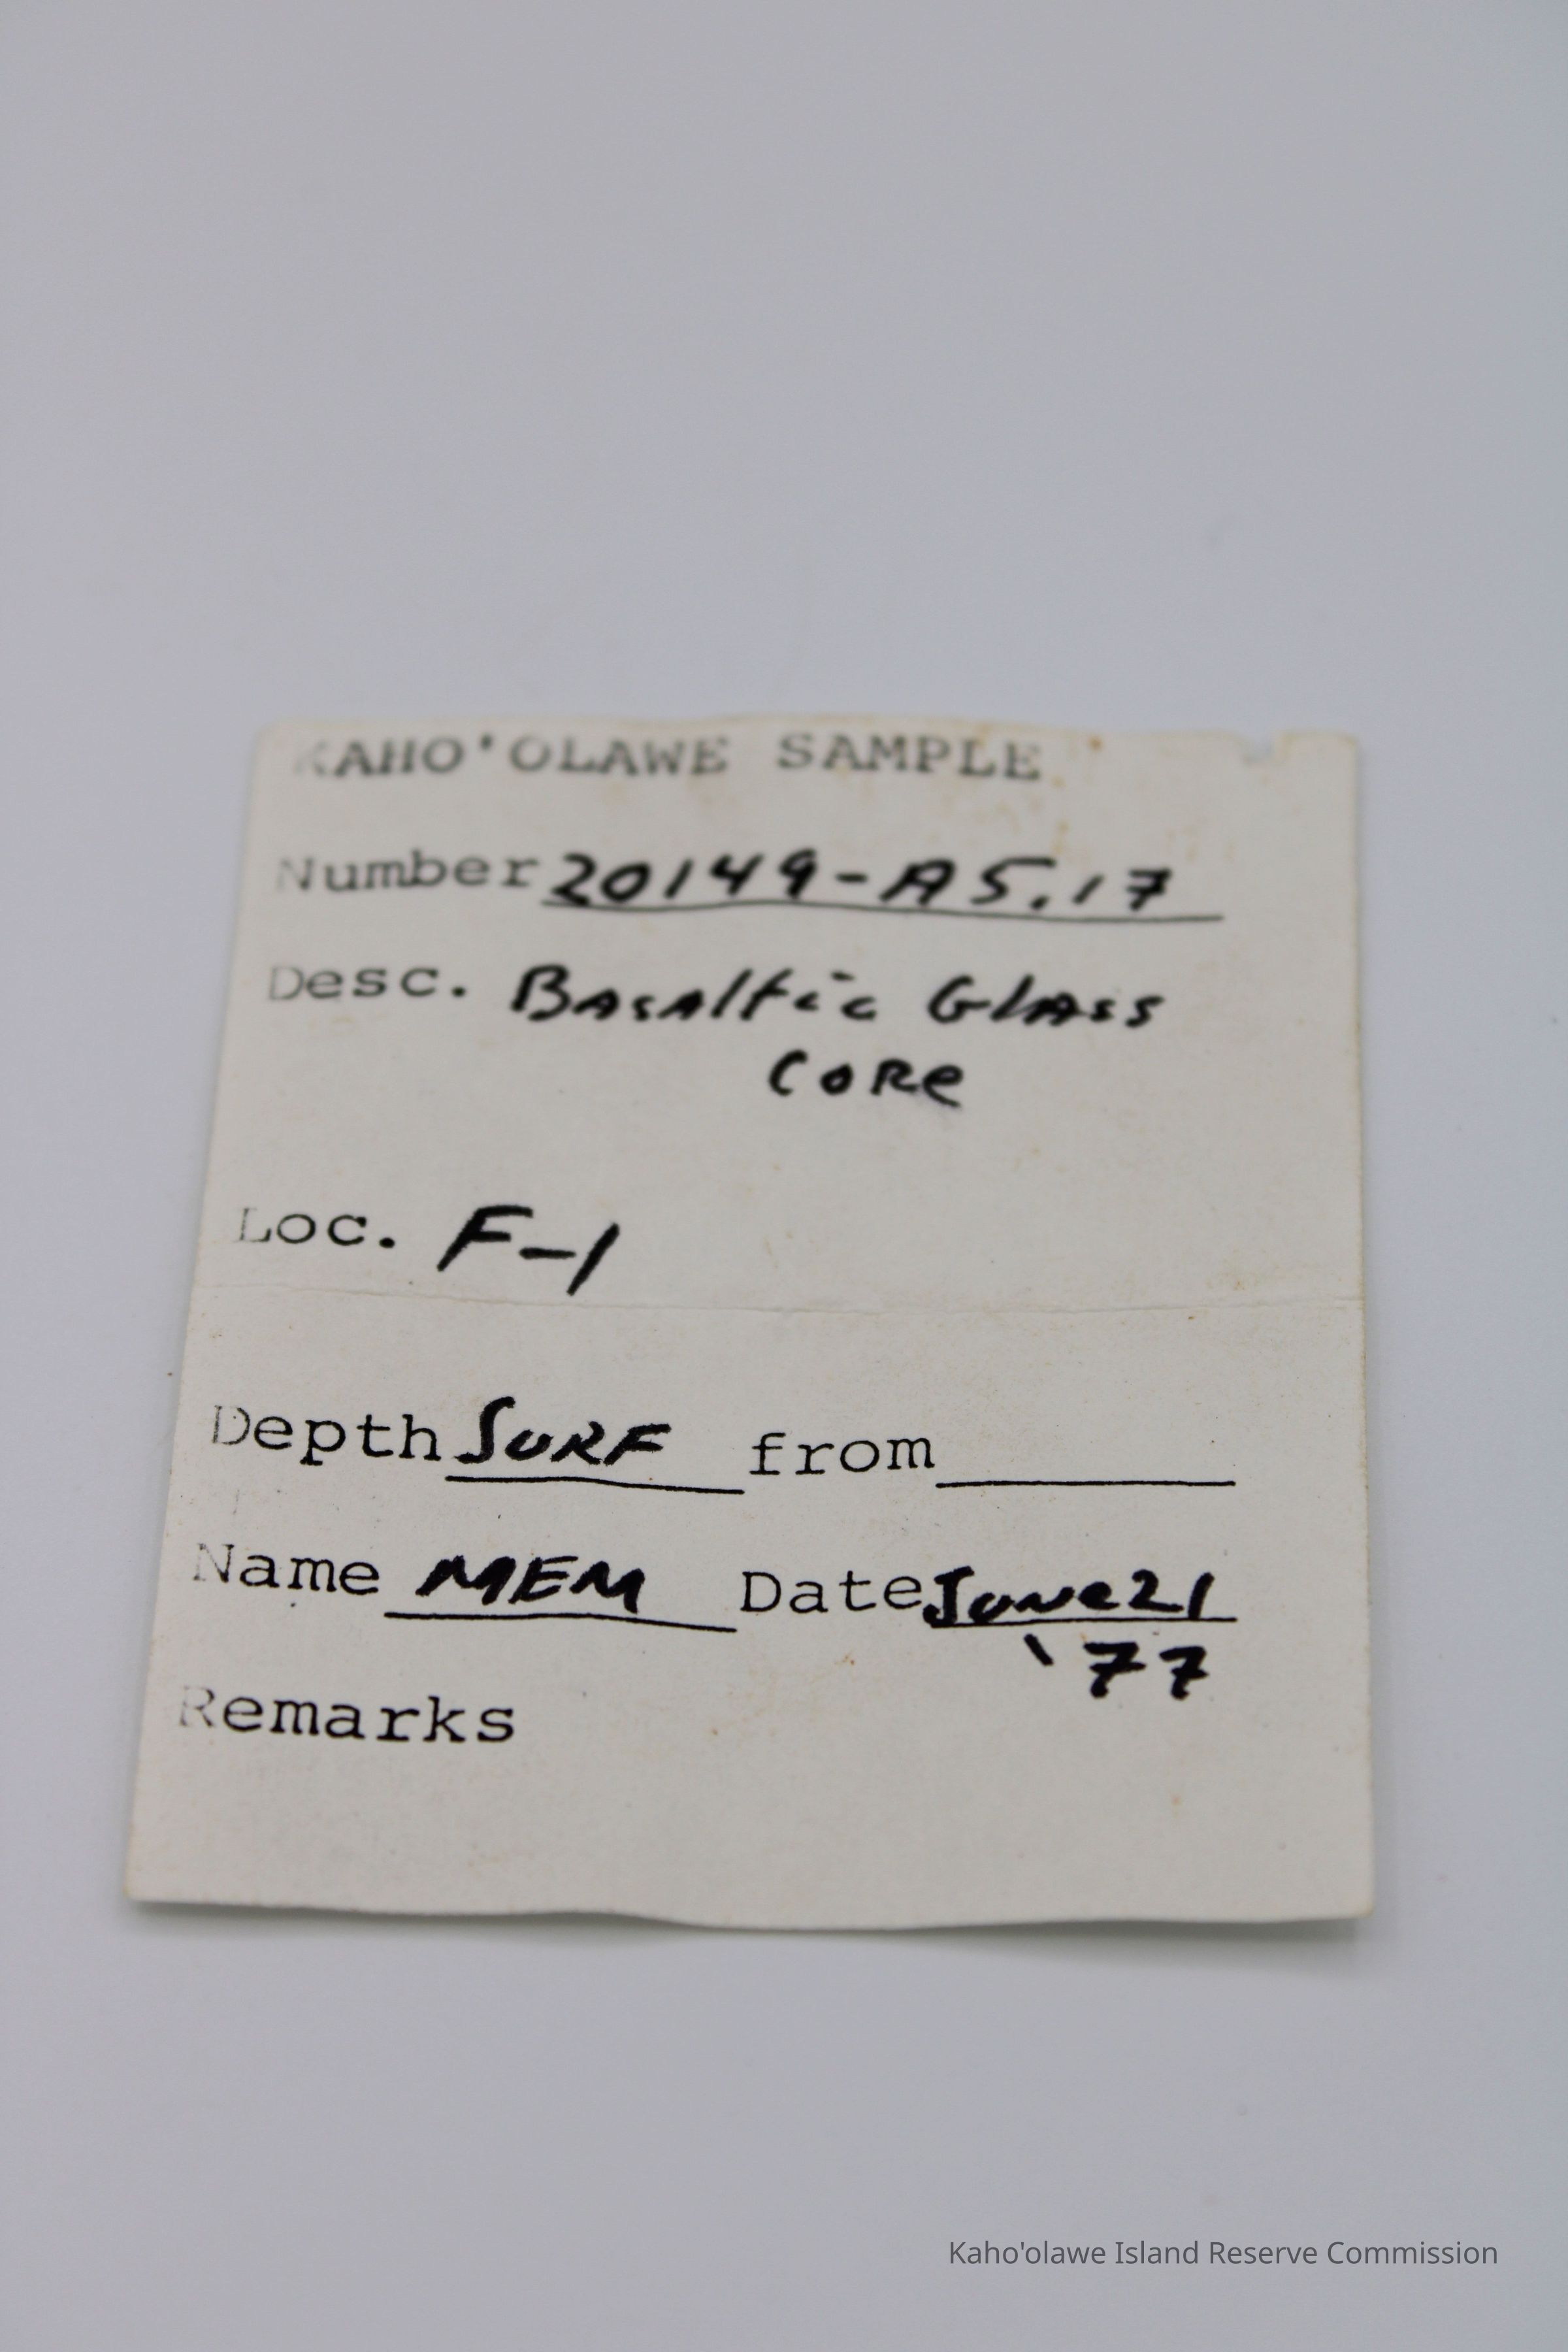 KAHO'OLAWE SAMPLE
Number 20149-A5.17
Desc. Basaltic Glass
Core
Loc. F-1
Depth SURF from
Name MEM Date June 21
'77
Remarks
Kaho'olawe Island Reserve Commission